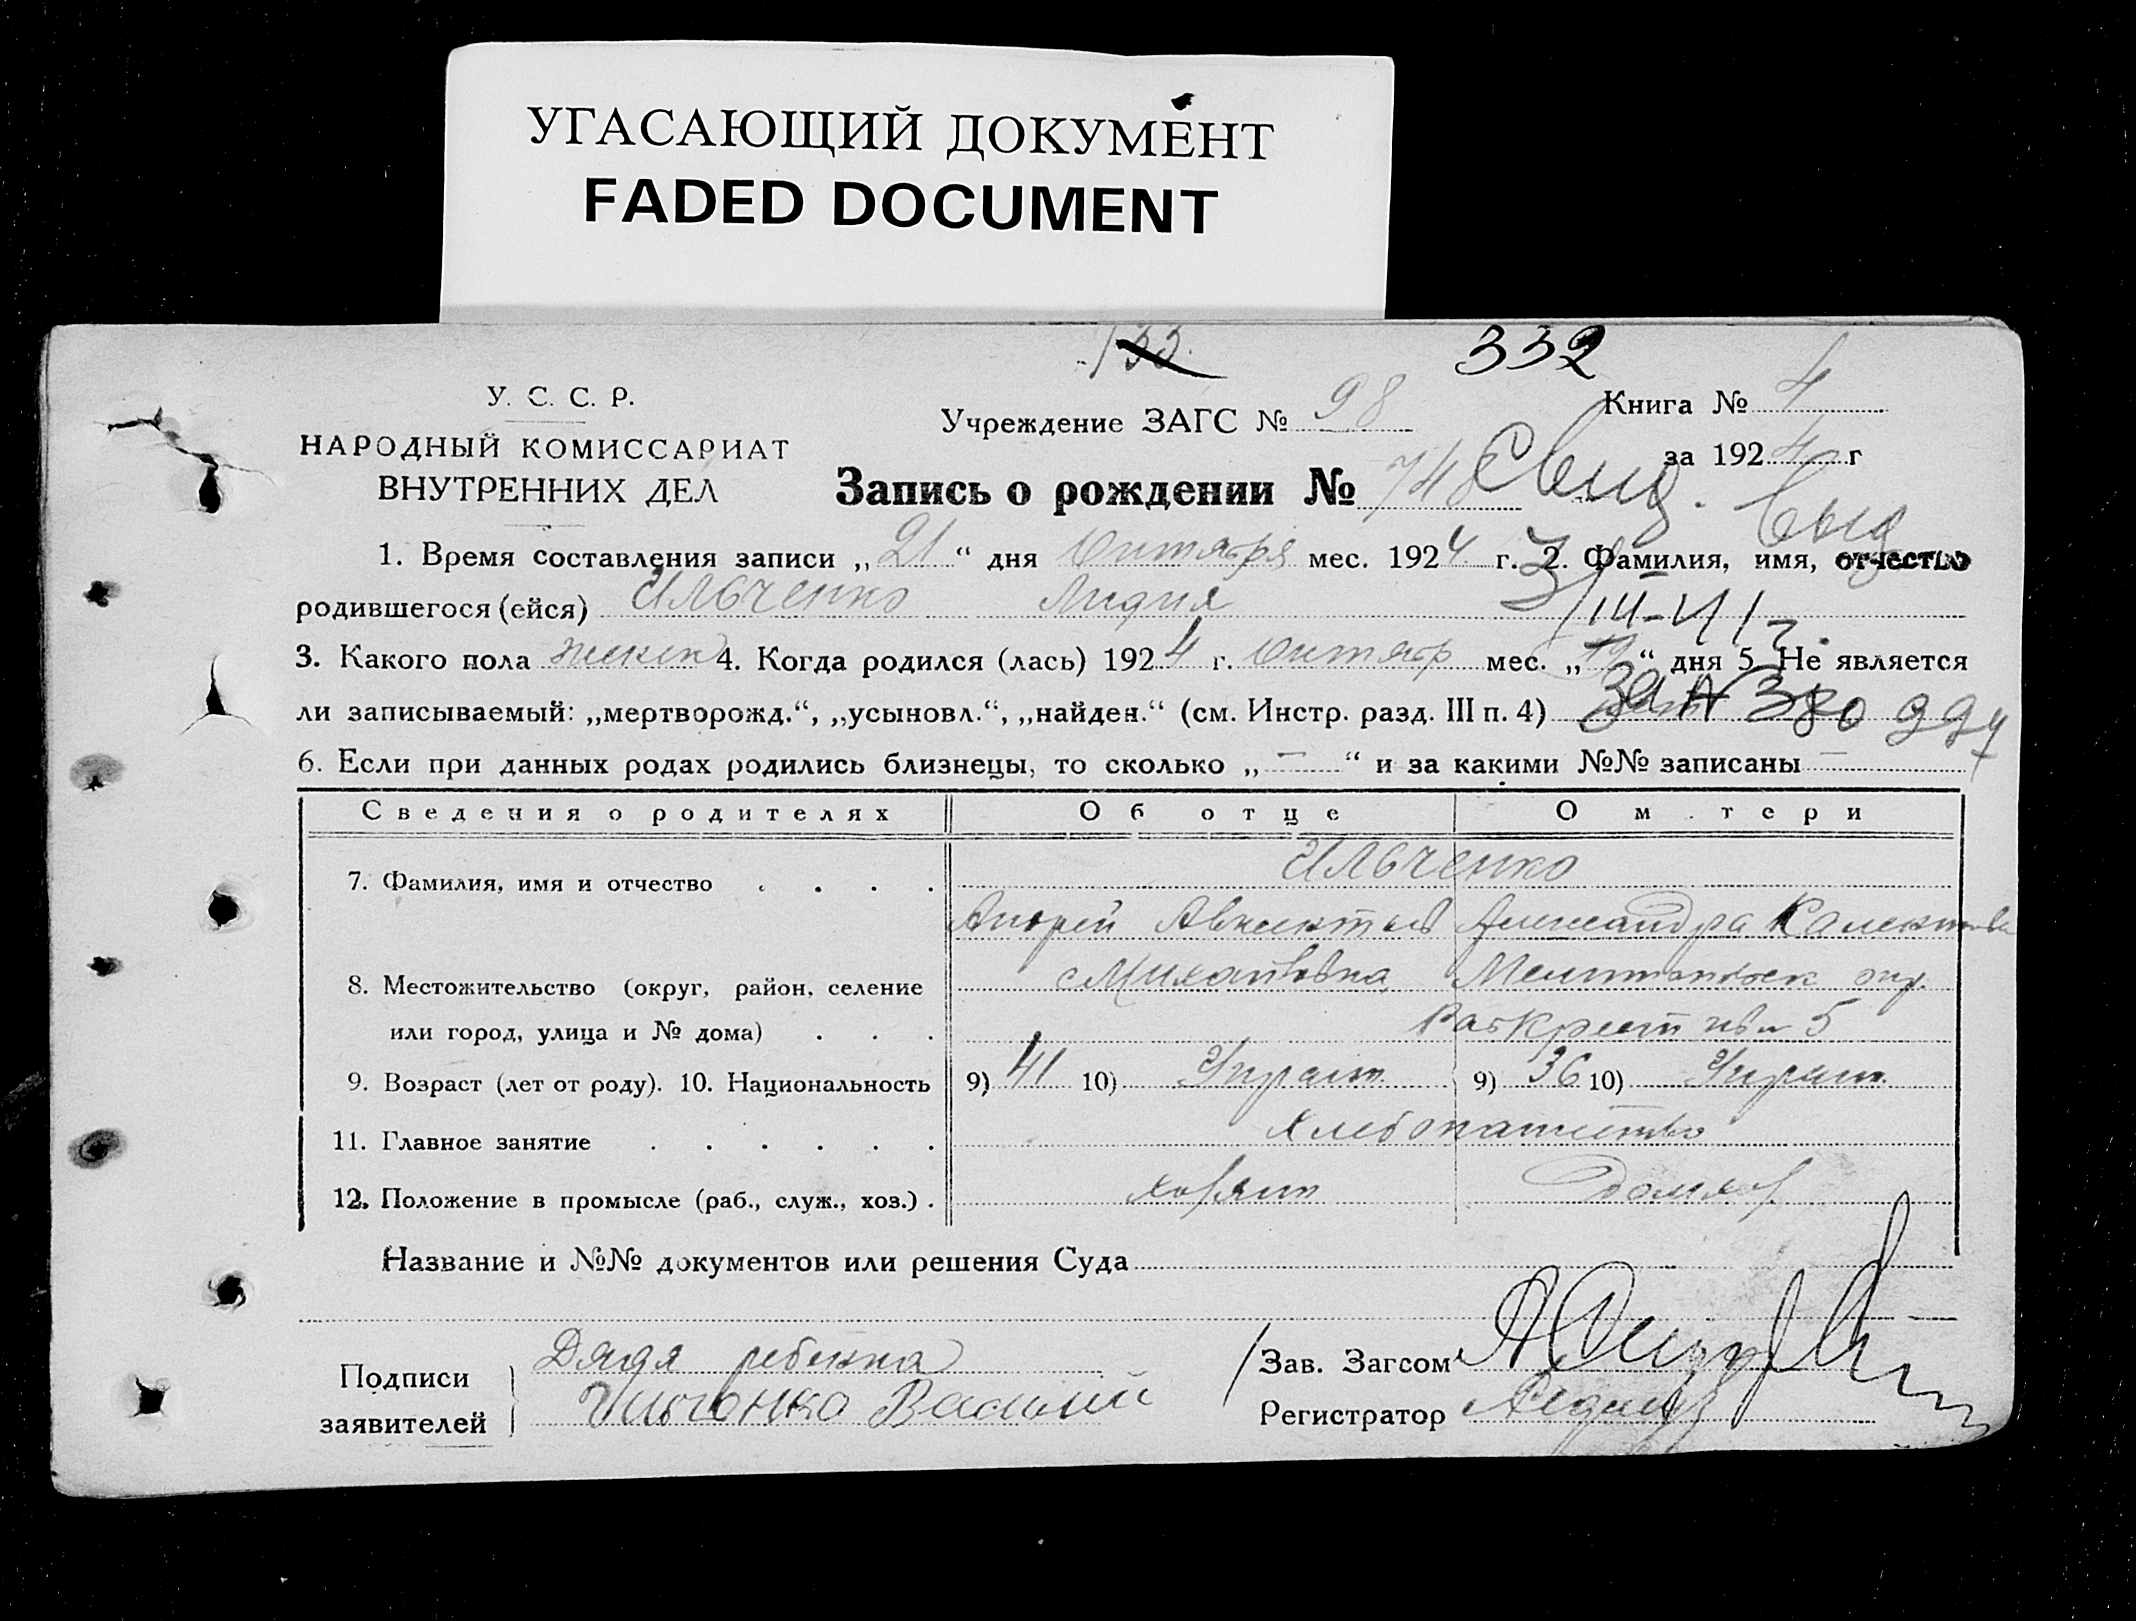 УГАСАЮЩИЙ ДОКУМЕНТ
FADED DOCUMENT
133. 332
У. С. С. Р.
НАРОДНЫЙ КОМИССАРИАТ
ВНУТРЕННИХ ДЕЛ
Учреждение ЗАГС № 98
Книга № 4
за 1924 г
Запись о рождении № 748 Свид. выд
1. Время составления записи „21“ дня Октября мес. 1924 г. 2. Фамилия, имя, отчество
родившегося (ейся) Ильченко Лидия
3. Какого пола женск 4. Когда родился (лась) 1924 г. Октябр мес. „19“ дня 5 Не является
ли записываемый: „мертворожд.“, „усыновл.“, „найден.“ (см. Инстр. разд. III п. 4)
за № 380994
6. Если при данных родах родились близнецы, то сколько „—“ и за какими №№ записаны —
Сведения о родителях Об отце О м тери
7. Фамилия, имя и отчество Ильченко
Андрей Александра
8. Местожительство (округ, район, селение Михайловка окр.
или город, улица и № дома) 5
9. Возраст (лет от роду). 10. Национальность 9) 41 10) Украин. 9) 36 10) Украин.
11. Главное занятие Хлебопашество
12. Положение в промысле (раб., служ., хоз.) хозяин домхоз
Название и №№ документов или решения Суда
Подписи заявителей Дядя ребенка
Ильченко Василий
Зав. Загсом
Регистратор